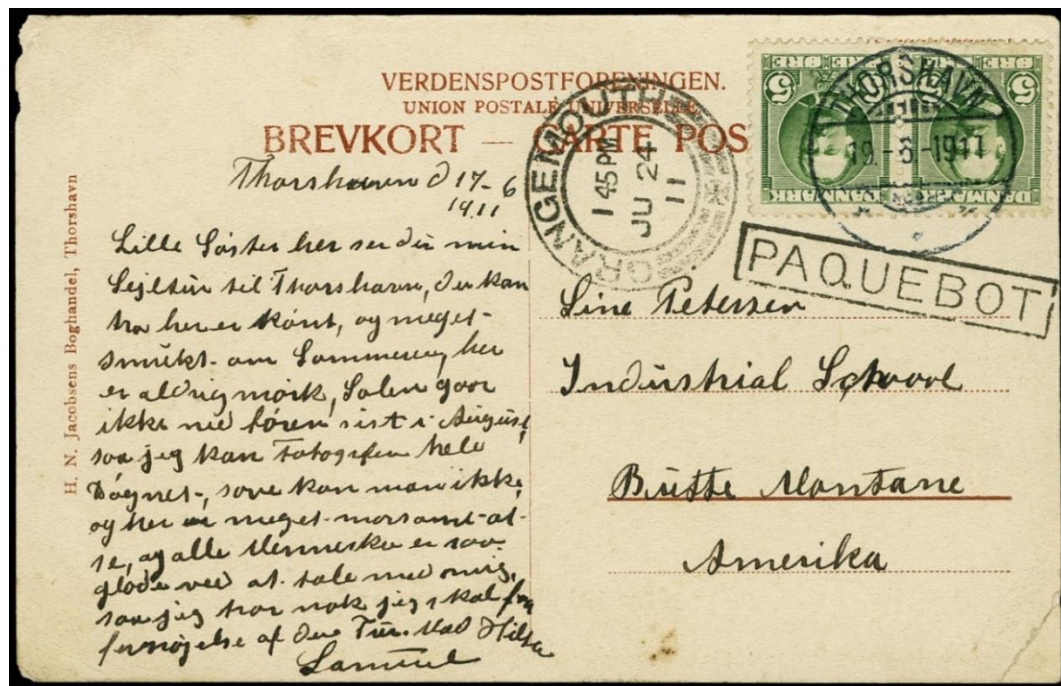 VERDENSPOSTFORENINGEN.
UNION POSTALE UNIVERSELLE
BREVKORT — CARTE POS
H. N. Jacobsens Boghandel, Thorshavn
Thorshavn d 17-6
1911
Lille Søster her ser du min
Sejltur til Thorshavn, du kan
tro her er kønt, og meget
smukt om Sommeren, her
er aldrig mørk, Solen gaar
ikke ned føren sist i August,
saa jeg kan Fotografere hele
Døgnet, sove kan man ikke,
og her er meget morsomt at
se, og alle Mennesker er saa
glade ved at tale med mig,
saa jeg tror nok jeg skal faa
fornøjelse af den Tur. Med Hilsen
Samuel
GRANGEMOUTH
1 45 PM
JU 24
11
5 ØRE ØRE 5
DANMARK DANMARK
THORSHAVN
19-6-1911
PAQUEBOT
Line Petersen
Industrial School
Butte Montane
Amerika